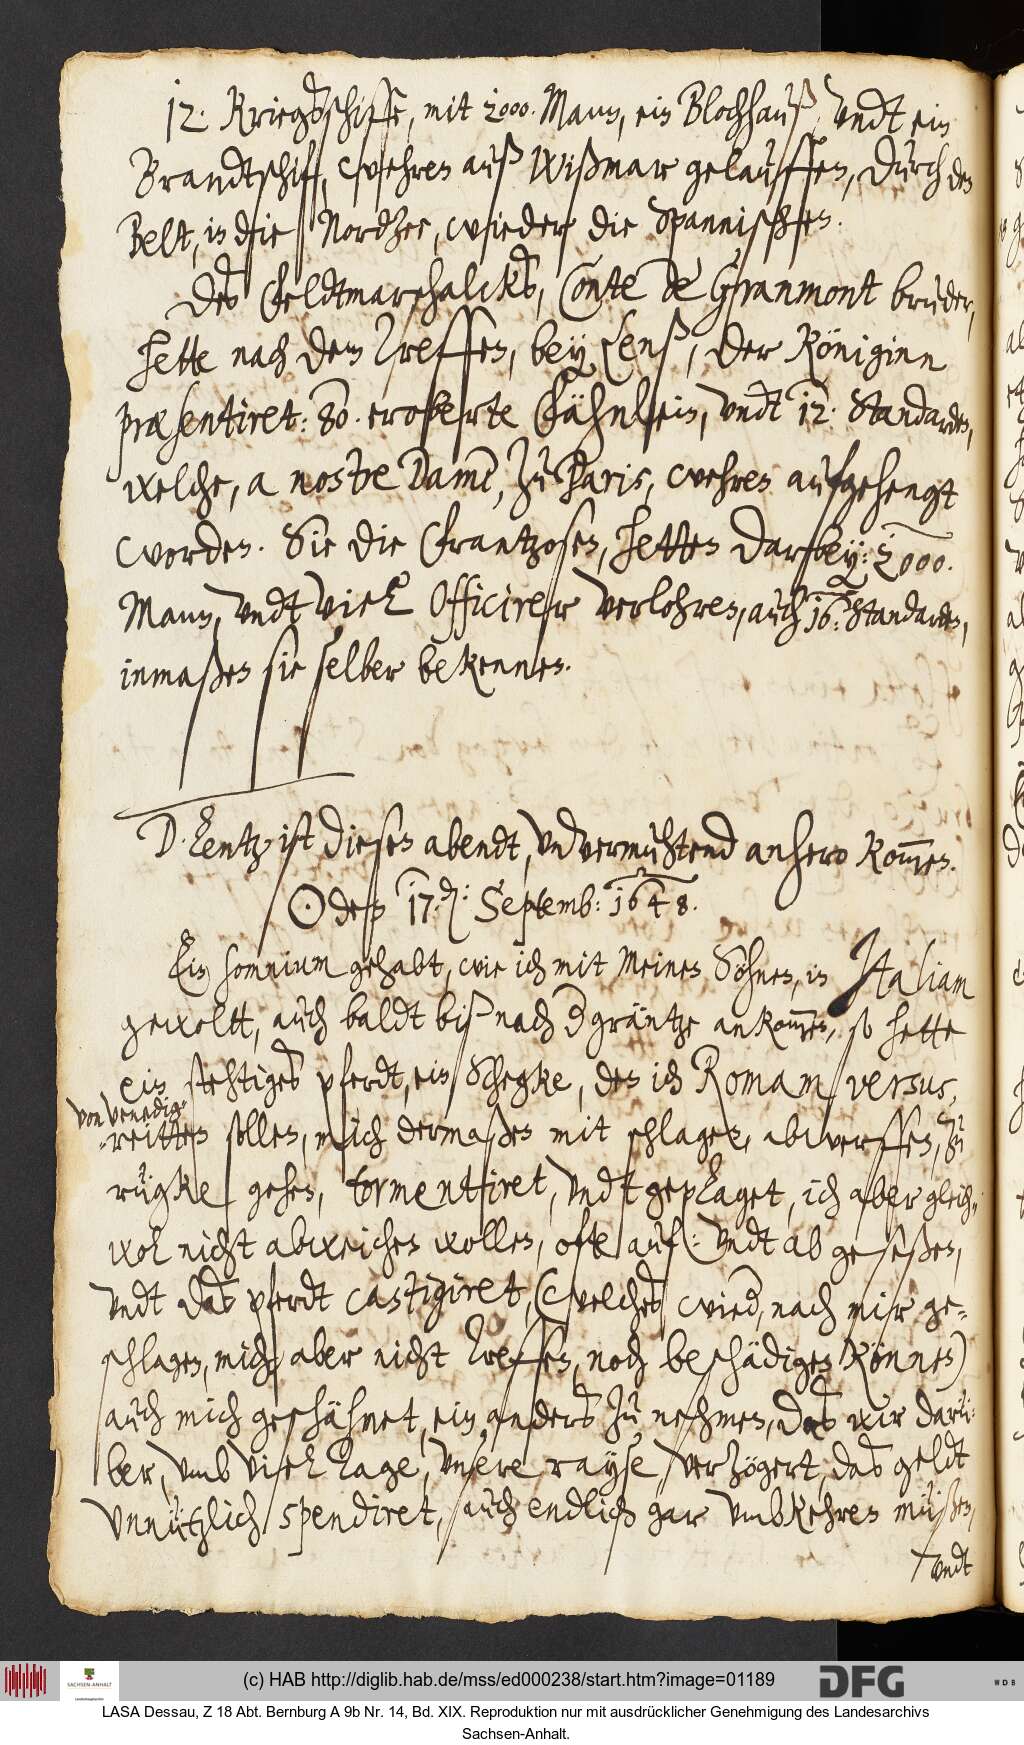 12. Kriegsschiffe, mit 2000. Mann, ein Blochhauß, vndt ein
Brandtschiff, wehren auß Wißmar gelauffen, durch den
Belt, in die Nordhsee, wieder die Spannischen.
Des Feldtmarschalcks, Conte de Granmont bruder,
hette nach dem treffen, bey Lenß, der Königinn
præsentiret: 80. eroberte Fähnlein, vndt 12. Standarden,
welche, a nostre Dame, zu Paris, wehren aufgehengt
worden. Sie die Frantzosen, hetten darbey: 2000.
Mann, vndt viel Officirer verlohren, auch 16: Standarden,
inmaßen sie selber bekennen.
D. Lentz ist diesen abendt, vnvermuhtend anhero kommen.
⊙ den 17. d: Septemb: 1648.
Ein somnium gehabt, wie ich mit Meinen Söhnen, in Italiam
gewoltt, auch baldt biß nach d gräntze ankommen, so hette
ein stehtiges pferdt, ein Schegke, den ich Romam versus,
von Venedig
reitten sollen, mich dermaßen mit schlagen, abwerffen, zu
rügke gehen, tormentiret, vndt geplaget, ich aber gleich-
wol nicht abweichen wollen, oft auf: vndt ab geseßen,
vndt das pferdt castigiret, (welches wied, nach mir ge-
schlagen, mich aber nicht treffen, noch beschädigen können)
auch mich geschähmet, ein anders zu nehmen, das wir darü-
ber, vmb viel tage, vnsere rayse, verzögert, das geldt
vnnützlich spendiret, auch endlich gar vmbkehren müßen,
vndt
(c) HAB http://diglib.hab.de/mss/ed000238/start.htm?image=01189
SACHSEN-ANHALT
DFG
WDB
LASA Dessau, Z 18 Abt. Bernburg A 9b Nr. 14, Bd. XIX. Reproduktion nur mit ausdrücklicher Genehmigung des Landesarchivs
Sachsen-Anhalt.